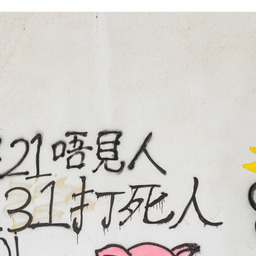 21唔見人
.31打死人